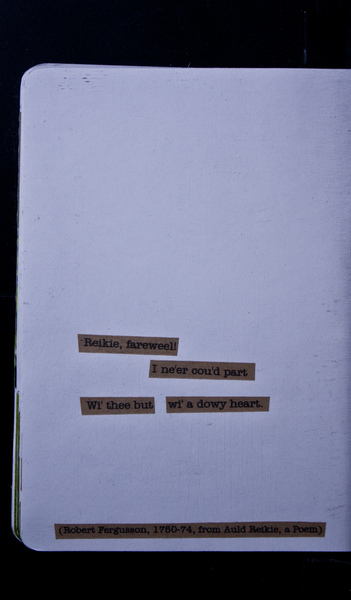 Reikie, fareweel!
I ne'er cou'd part
Wi' thee but wi' a dowy heart.
(Robert Fergusson, 1750-74, from Auld Reikie, a Poem)